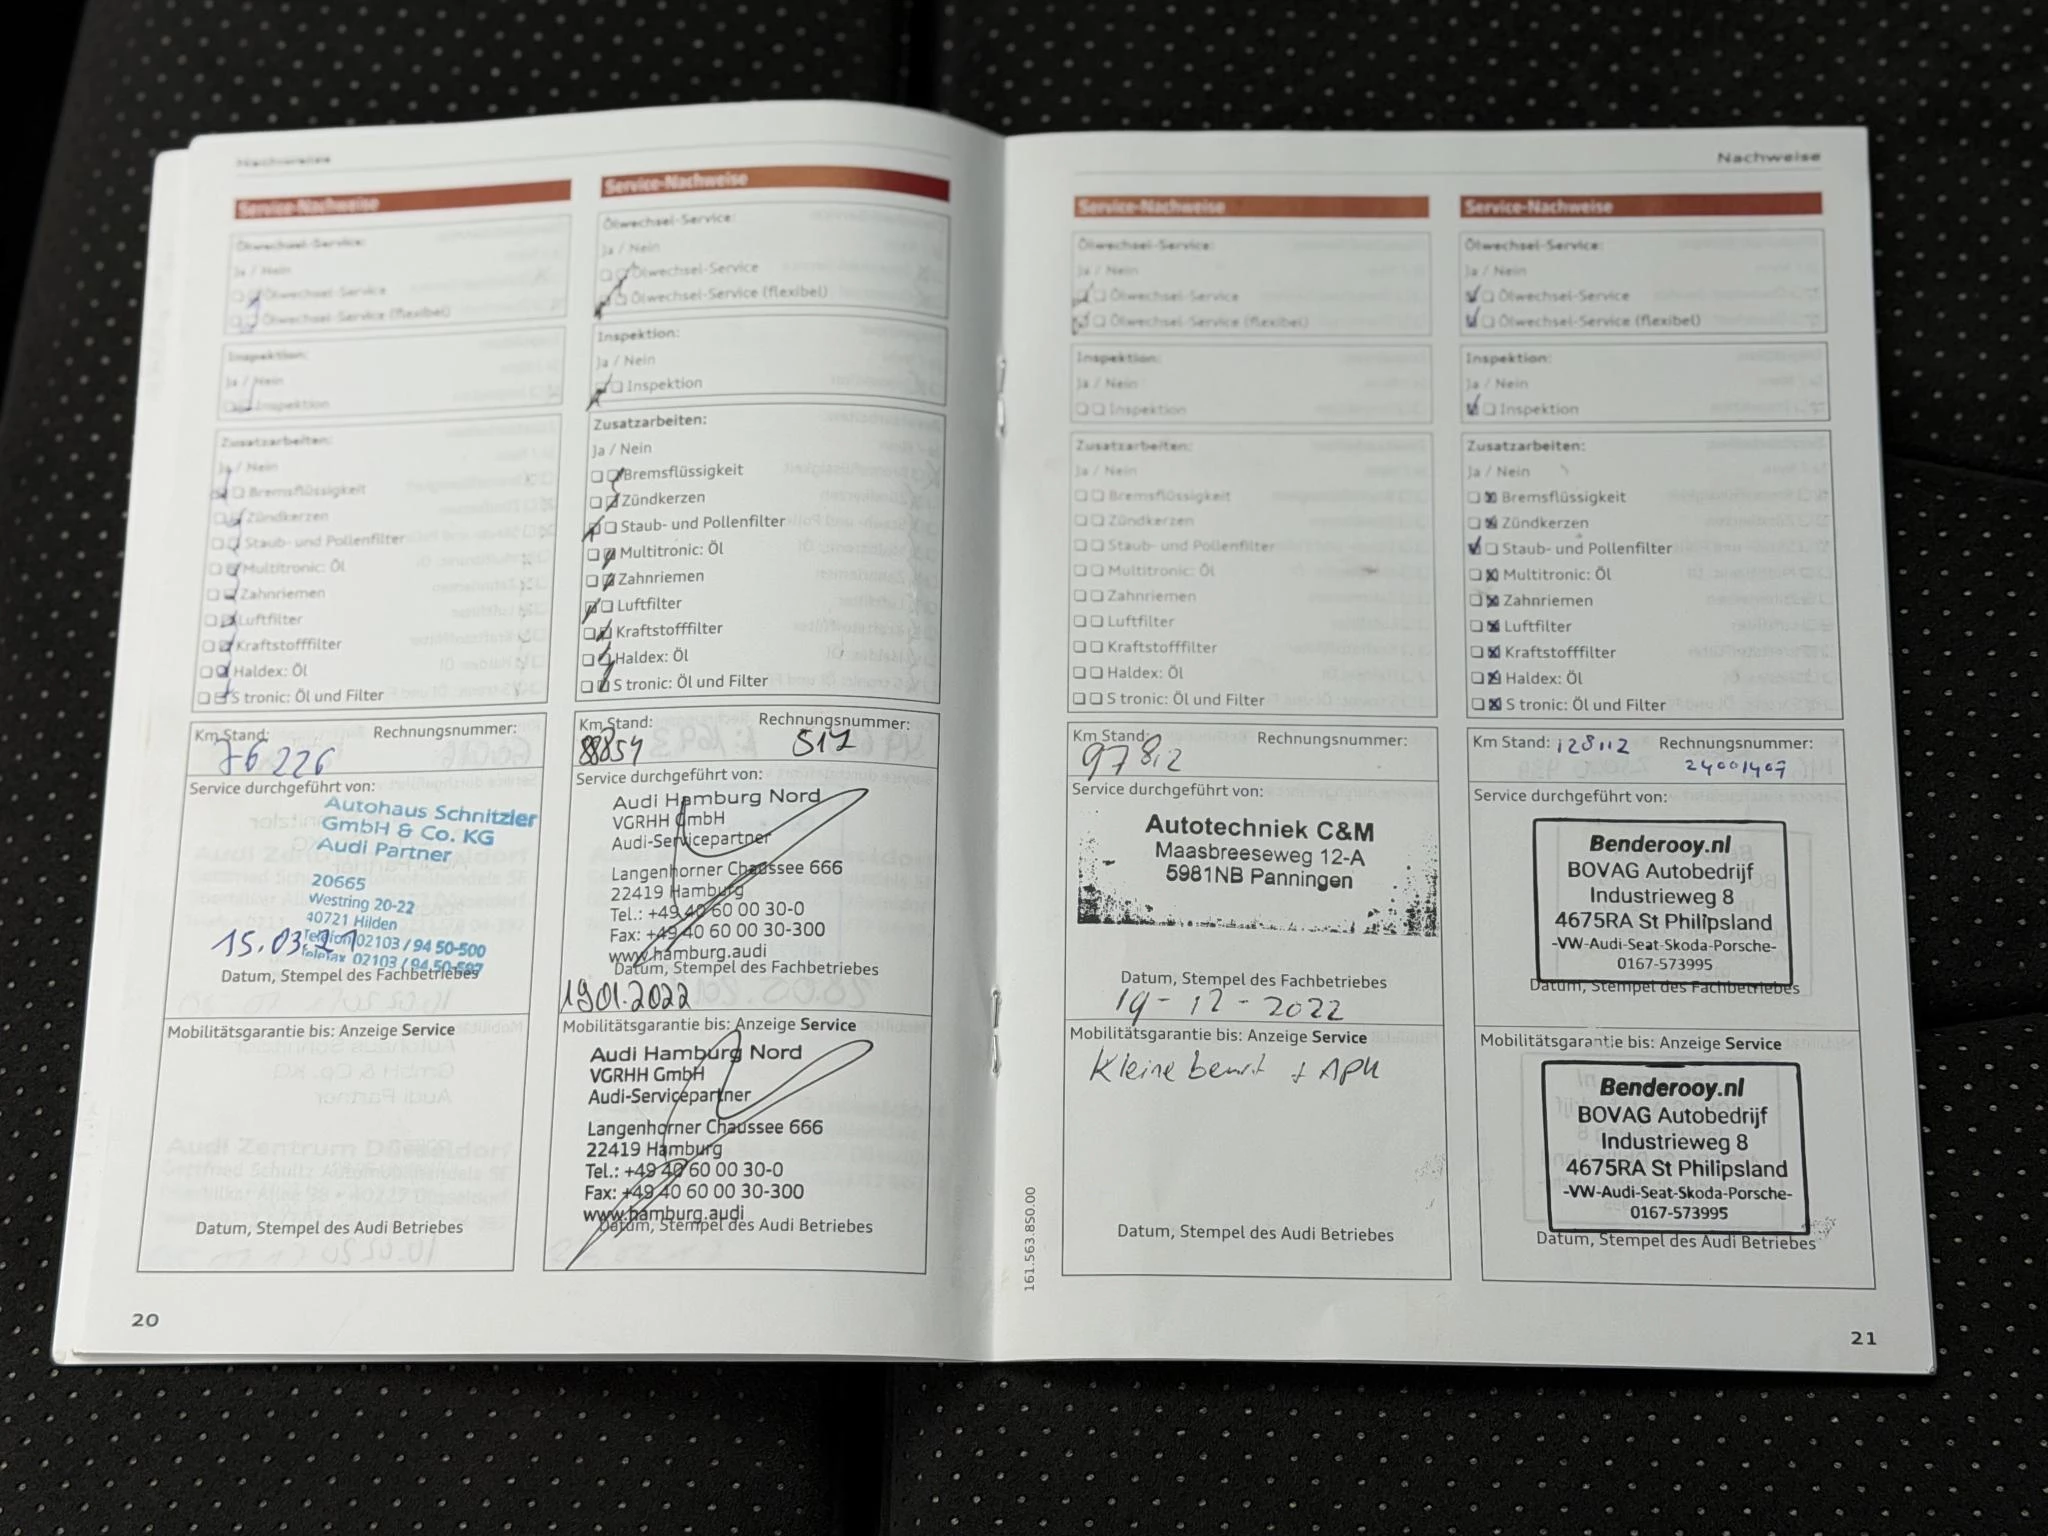 Nachweise
Service-Nachweise
Ölwechsel-Service:
Ja / Nein
Ölwechsel-Service
Ölwechsel-Service (flexibel)
Inspektion:
Ja / Nein
Inspektion
Zusatzarbeiten:
Ja / Nein
Bremsflüssigkeit
Zündkerzen
Staub- und Pollenfilter
Multitronic: Öl
Zahnriemen
Luftfilter
Kraftstofffilter
Haldex: Öl
S tronic: Öl und Filter
Km Stand: Rechnungsnummer:
76226
Service durchgeführt von:
Autohaus Schnitzler
GmbH & Co. KG
Audi Partner
20665
Westring 20-22
40721 Hilden
Telefon 02103 / 94 50-500
Telefax 02103 / 94 50-597
15.03.21
Datum, Stempel des Fachbetriebes
Mobilitätsgarantie bis: Anzeige Service
Datum, Stempel des Audi Betriebes
20
Service-Nachweise
Ölwechsel-Service:
Ja / Nein
Ölwechsel-Service
Ölwechsel-Service (flexibel)
Inspektion:
Ja / Nein
Inspektion
Zusatzarbeiten:
Ja / Nein
Bremsflüssigkeit
Zündkerzen
Staub- und Pollenfilter
Multitronic: Öl
Zahnriemen
Luftfilter
Kraftstofffilter
Haldex: Öl
S tronic: Öl und Filter
Km Stand: Rechnungsnummer:
88854 517
Service durchgeführt von:
Audi Hamburg Nord
VGRHH GmbH
Audi-Servicepartner
Langenhorner Chaussee 666
22419 Hamburg
Tel.: +49 40 60 00 30-0
Fax: +49 40 60 00 30-300
www.hamburg.audi
Datum, Stempel des Fachbetriebes
19.01.2022
Mobilitätsgarantie bis: Anzeige Service
Audi Hamburg Nord
VGRHH GmbH
Audi-Servicepartner
Langenhorner Chaussee 666
22419 Hamburg
Tel.: +49 40 60 00 30-0
Fax: +49 40 60 00 30-300
www.hamburg.audi
Datum, Stempel des Audi Betriebes
Nachweise
Service-Nachweise
Ölwechsel-Service:
Ja / Nein
Ölwechsel-Service
Ölwechsel-Service (flexibel)
Inspektion:
Ja / Nein
Inspektion
Zusatzarbeiten:
Ja / Nein
Bremsflüssigkeit
Zündkerzen
Staub- und Pollenfilter
Multitronic: Öl
Zahnriemen
Luftfilter
Kraftstofffilter
Haldex: Öl
S tronic: Öl und Filter
Km Stand: Rechnungsnummer:
Service durchgeführt von:
Autotechniek C&M
Maasbreeseweg 12-A
5981NB Panningen
Datum, Stempel des Fachbetriebes
19-12-2022
Mobilitätsgarantie bis: Anzeige Service
Kleine beurt + APK
Datum, Stempel des Audi Betriebes
161.563.850.00
Service-Nachweise
Ölwechsel-Service:
Ja / Nein
Ölwechsel-Service
Ölwechsel-Service (flexibel)
Inspektion:
Ja / Nein
Inspektion
Zusatzarbeiten:
Ja / Nein
Bremsflüssigkeit
Zündkerzen
Staub- und Pollenfilter
Multitronic: Öl
Zahnriemen
Luftfilter
Kraftstofffilter
Haldex: Öl
S tronic: Öl und Filter
Km Stand: 128112 Rechnungsnummer:
24001407
Service durchgeführt von:
Benderooy.nl
BOVAG Autobedrijf
Industrieweg 8
4675RA St Philipsland
-VW-Audi-Seat-Skoda-Porsche-
0167-573995
Datum, Stempel des Fachbetriebes
Mobilitätsgarantie bis: Anzeige Service
Benderooy.nl
BOVAG Autobedrijf
Industrieweg 8
4675RA St Philipsland
-VW-Audi-Seat-Skoda-Porsche-
0167-573995
Datum, Stempel des Audi Betriebes
21